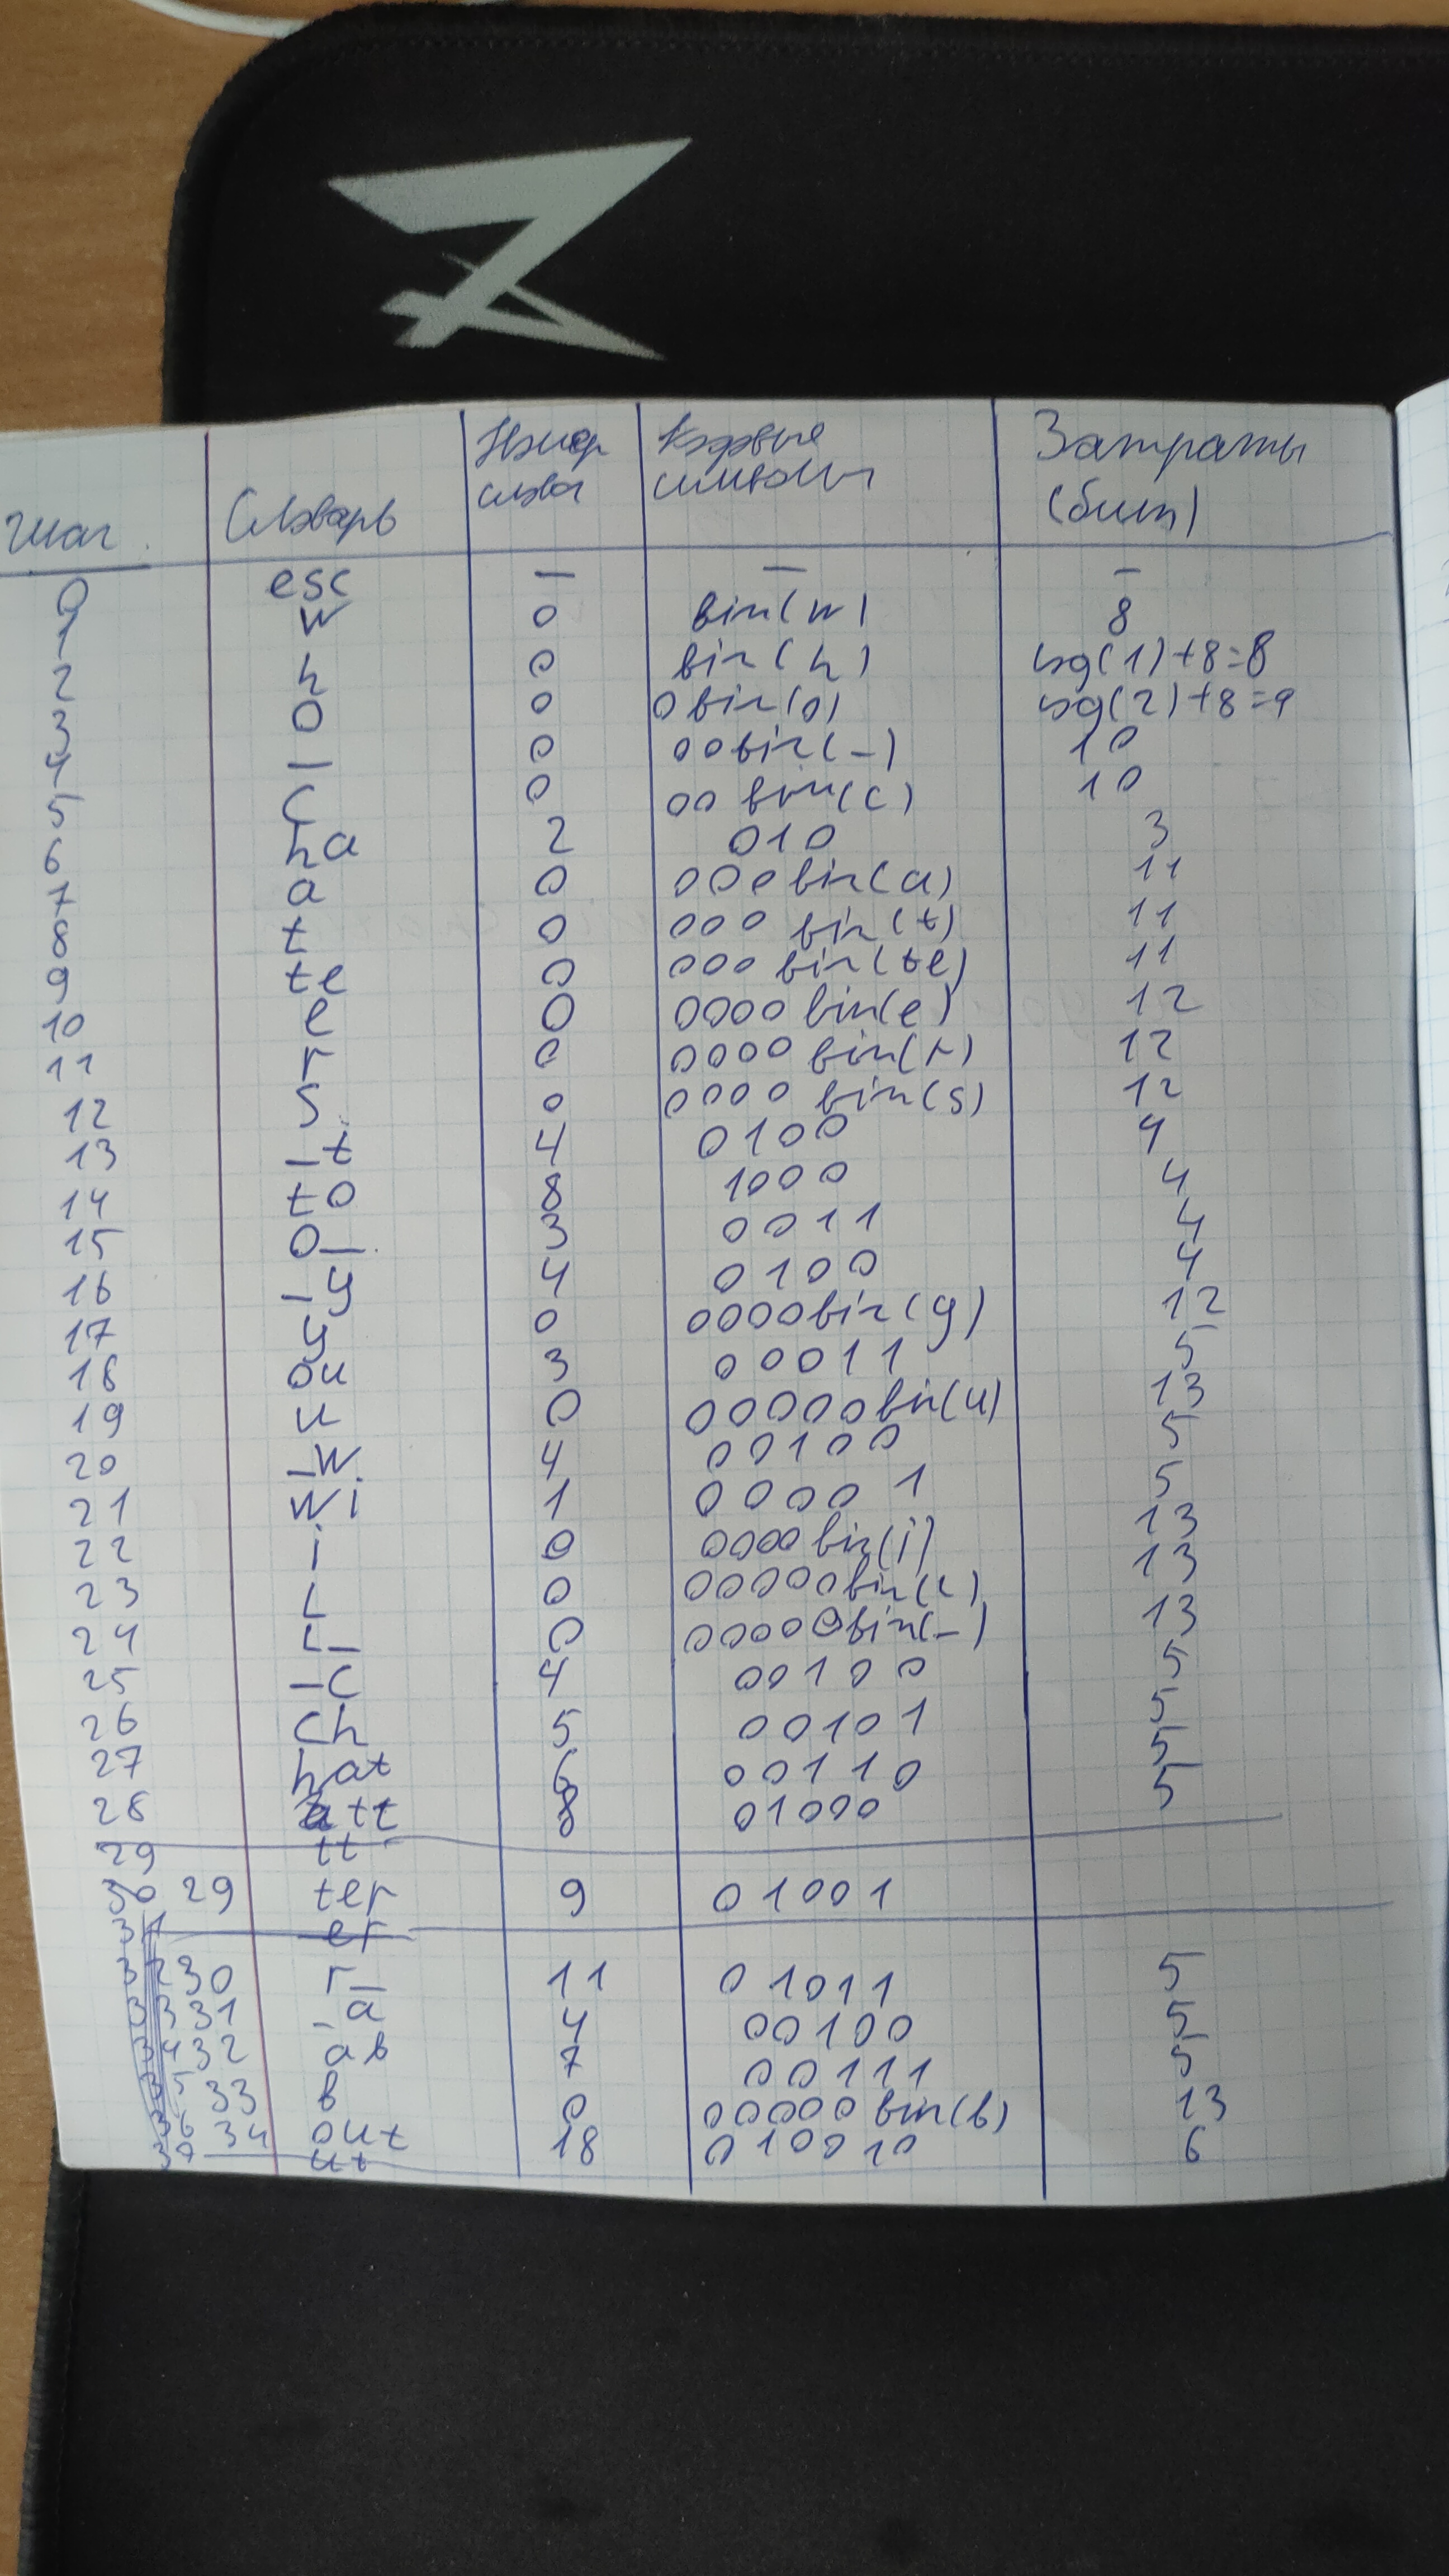 Шаг Словарь Номер слова Кодовые символы Затраты (бит)
0 esc – – –
1 w 0 bin(w) 8
2 h 0 bin(h) log(1)+8=8
3 o 0 0bin(o) log(2)+8=9
4 _ 0 00bin(_) 10
5 c 0 00bin(c) 10
6 ha 2 010 3
7 a 0 000bin(a) 11
8 t 0 000bin(t) 11
9 te 0 000bin(te) 11
10 e 0 0000bin(e) 12
11 r 0 0000bin(r) 12
12 s 0 0000bin(s) 12
13 _t 4 0100 4
14 to 8 1000 4
15 o_ 3 0011 4
16 _y 4 0100 4
17 y 0 0000bin(y) 12
18 ou 3 00011 5
19 u 0 00000bin(u) 13
20 _w 4 00100 5
21 wi 1 00001 5
22 i 0 0000bin(i) 13
23 L 0 00000bin(L) 13
24 L_ 0 00000bin(_) 13
25 _c 4 00100 5
26 ch 5 00101 5
27 hat 6 00110 5
28 att 8 01000 5
29 tt
30 29 ter 9 01001
31 er
30 r_ 11 01011 5
31 _a 4 00100 5
32 ab 7 00111 5
33 b 0 00000bin(b) 13
34 out 18 010010 6
ut